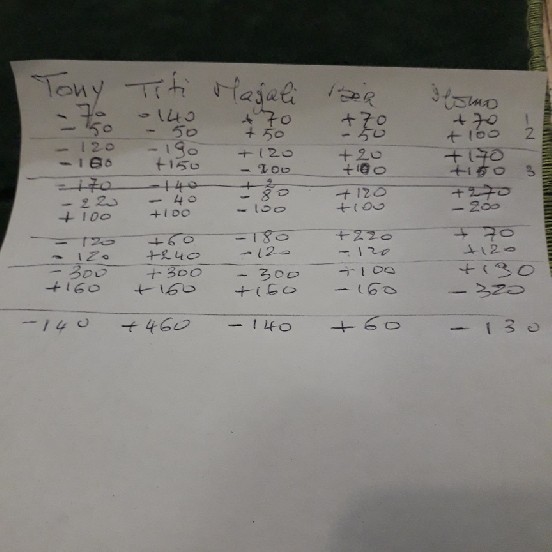 Tony Titi Magali Momo
-70 -140 +70 +70 +70 1
-50 -50 +50 -50 +100 2
-120 -190 +120 +20 +170
-100 +150 -200 +100 +100 3
-170 -140
-220 -40 -80 +120 +270
+100 +100 -100 +100 -200
-120 +60 -180 +220 +70
-120 +240 -120 -120 +120
-300 +300 -300 +100 +190
+160 +160 +160 -160 -320
-140 +460 -140 +60 -130